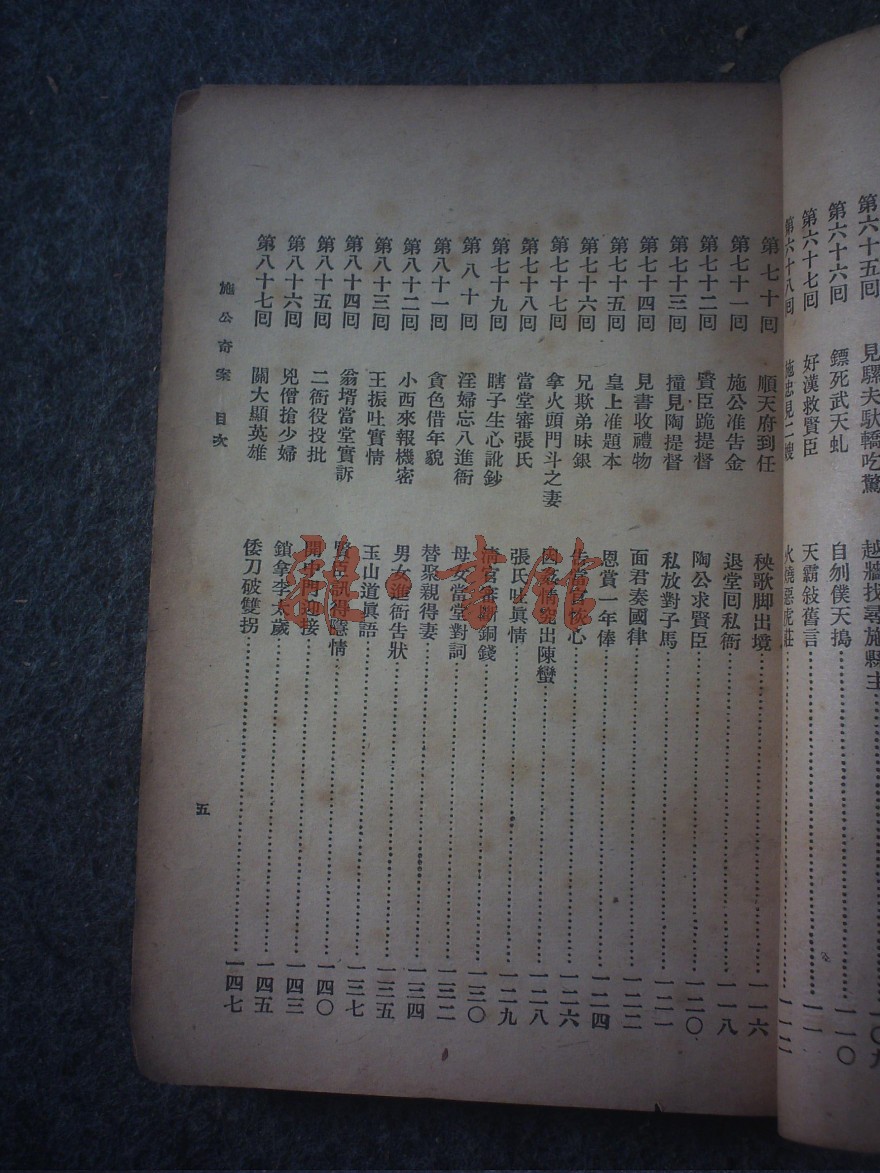 第六十五回 見騾夫馱轎吃驚 越牆找尋施縣主 一〇九
第六十六回 鏢死武天虬 自刎僕天搗 一一〇
第六十七回 好漢救賢臣 天霸敍舊言
第六十八回 施忠見二嫂 火燒惡虎莊 一一二
第七十回 順天府到任 秧歌脚出境 一一六
第七十一回 施公准告金 退堂回私衙 一一八
第七十二回 賢臣跪提督 陶公求賢臣 一二〇
第七十三回 撞見陶提督 私放對子馬 一二一
第七十四回 見書收禮物 面君奏國律 一二二
第七十五回 皇上准題本 恩賞一年俸 一二四
第七十六回 兄欺弟昧銀 一二六
第七十七回 拿火頭門斗之妻 因姦情究出陳蠻 一二八
第七十八回 當堂審張氏 張氏吐眞情 一二九
第七十九回 瞎子生心訛鈔 淸官審斷銅錢 一三〇
第八十回 淫婦忘八進衙 母女當堂對詞 一三二
第八十一回 貪色借年貌 替聚親得妻 一三四
第八十二回 小西來報機密 男女進衙告狀 一三五
第八十三回 王振吐實情 玉山道眞語 一三七
第八十四回 翁壻當堂實訴 賢臣訊得隱情 一四〇
第八十五回 二衙役投批 開中門迎接 一四三
第八十六回 兇僧搶少婦 鎖拿李太歲 一四五
第八十七回 關大顯英雄 倭刀破雙拐 一四七
施公奇案 目次
五
書館